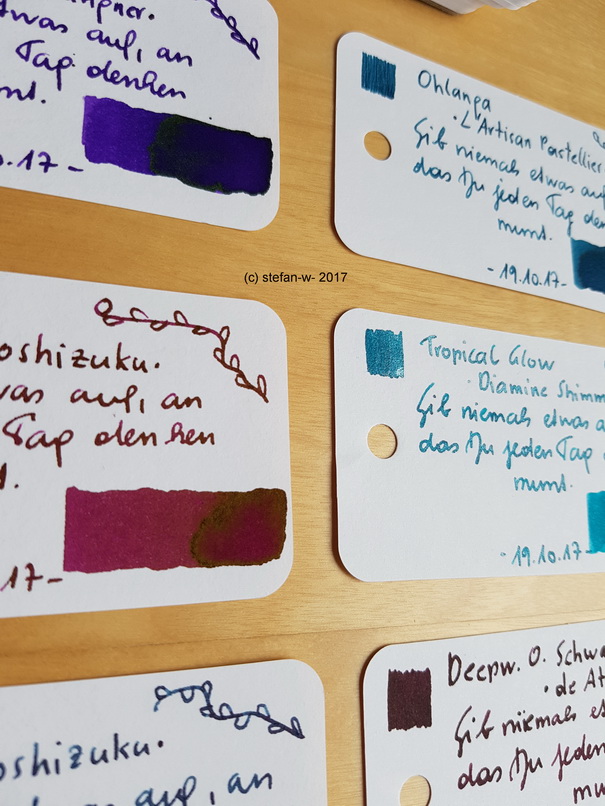 etwas auf, an
Tag denken
musst.
0.17 -
Ohlanga
· L'Artisan Pastellier
Gib niemals etwas auf
das Du jeden Tag den
musst.
- 19.10.17-
(c) stefan-w- 2017
oshizuku.
was auf, an
Tag denken
t.
17-
Tropical Glow
· Diamine Shimm
Gib niemals etwas a
das Du jeden Tag
musst.
- 19.10.17-
oshizuku.
as auf, an
Deepw. O. Schwa
· de At
Gib niemals et
das Du jeden
mu